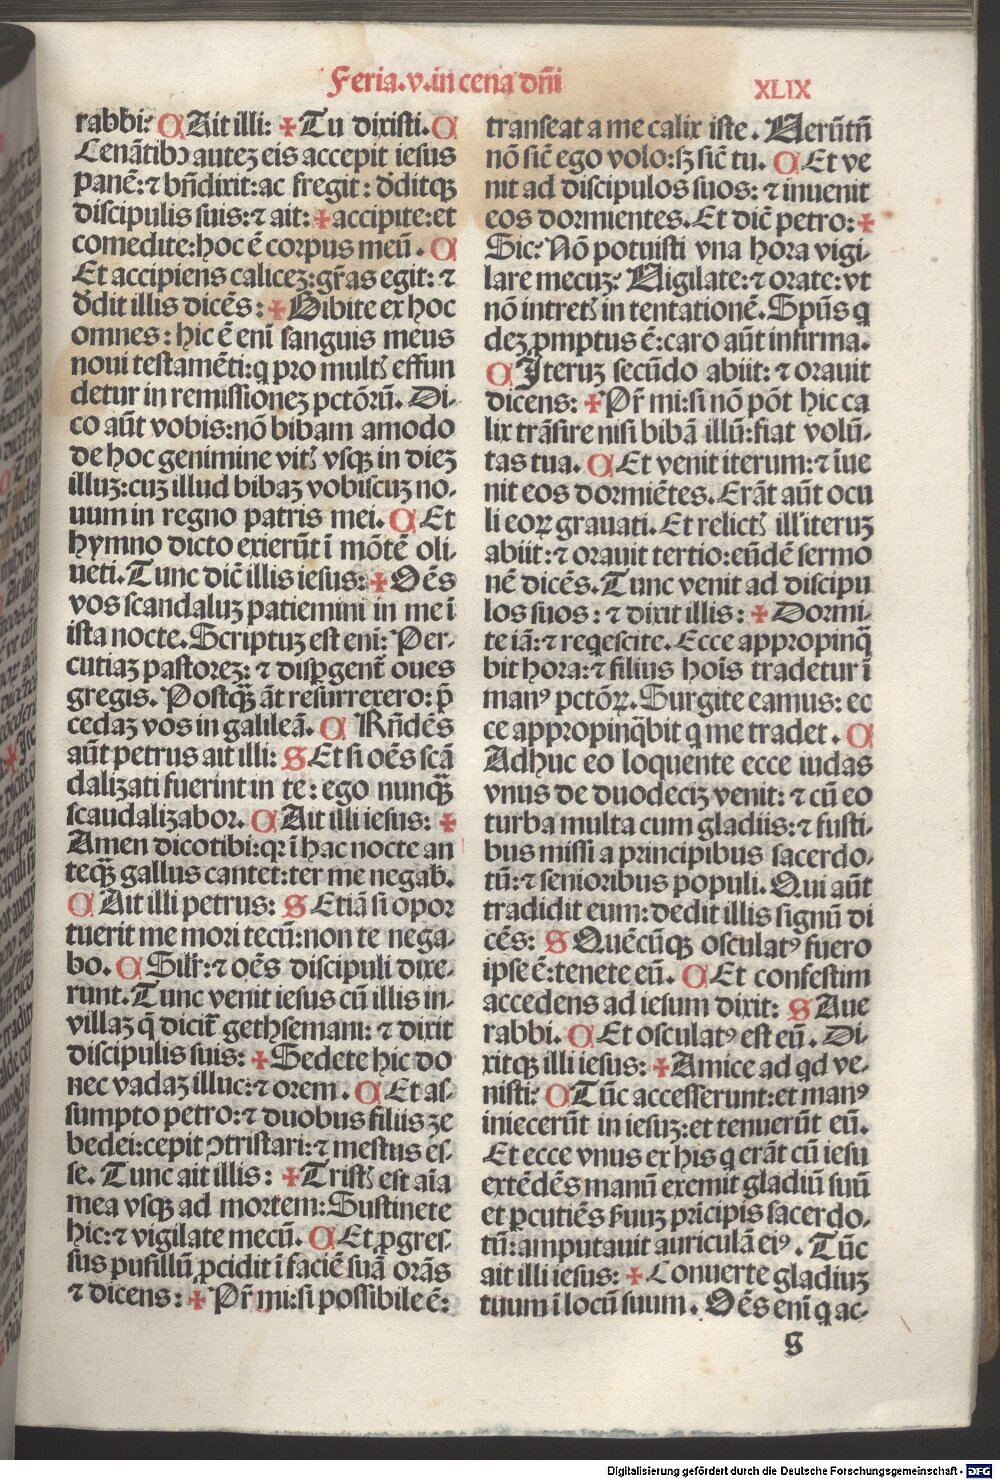 Feria.v.in cena dn̄i
XLIX
rabbi? C Ait illi: ✠ Tu dixisti. C
Cenātibꝰ autez eis accepit iesus
panē: ⁊ bn̄dixit: ac fregit: dditqꝫ
discipulis suis: ⁊ ait: ✠ accipite: et
comedite: hoc ē corpus meū. C
Et accipiens calicez: gr̄as egit: ⁊
ddit illis dicēs: ✠ Bibite ex hoc
omnes: hic ē enī sanguis meus
noui testamēti: q pro multꝭ effun
detur in remissionez pctōrū. Di-
co aūt vobis: nō bibam amodo
de hoc genimine vitꝭ vsqꝫ in diez
illuz: cuz illud bibaz vobiscuz no-
uum in regno patris mei. C Et
hymno dicto exierūt ī mōtē oli-
ueti. Tunc dic̄ illis iesus: ✠ Oēs
vos scandaluz patiemini in me ī
ista nocte. Scriptuz est enī: Per-
cutiaz pastorez: ⁊ dispgent̄ oues
gregis. Postqꝫ āt resurrexero: p̄
cedaz vos in galileā. C Rn̄dēs
aūt petrus ait illi: S Et si oēs scā
dalizati fuerint in te: ego nunqꝫ
scaudalizabor. C Ait illi iesus: ✠
Amen dico tibi: qr ī hac nocte an
teqꝫ gallus cantet: ter me negab.
C Ait illi petrus: S Etiā si opor
tuerit me mori tecū: non te nega-
bo. C Silr̄: ⁊ oēs discipuli dixe-
runt. Tunc venit iesus cū illis in-
villaz q̄ dicit̄ gethsemani: ⁊ dixit
discipulis suis: ✠ Sedete hic do
nec vadaz illuc: ⁊ orem. C Et as-
sumpto petro: ⁊ duobus filiis ze
bedei: cepit ↄtristari: ⁊ mestus ēs-
se. Tunc ait illis: ✠ Tristꝭ est aīa
mea vsqꝫ ad mortem: Sustinete
hic: ⁊ vigilate mecū. C Et ꝓgres-
sus pusillū ꝓcidit ī faciē suā orās
⁊ dicens: ✠ Pr̄ mi: si possibile ē:
transeat a me calix iste. Uerūtn̄
nō sic̄ ego volo: sꝫ sic̄ tu. C Et ve
nit ad discipulos suos: ⁊ inuenit
eos dormientes. Et dic̄ petro: ✠
Sic? Nō potuisti vna hora vigi-
lare mecuz? Uigilate: ⁊ orate: vt
nō intretꝭ in tentationē. Spūs q
dez ꝓmptus ē: caro aūt infirma.
C Iteruz secūdo abiit: ⁊ orauit
dicens: ✠ Pr̄ mi: si nō pōt hic ca
lix trāsire nisi bibā illū: fiat volū-
tas tua. C Et venit iterum: ⁊ īue
nit eos dormiētes. Erāt aūt ocu
li eoꝝ grauati. Et relictꝭ ill' iteruz
abiit: ⁊ orauit tertio: eūdē sermo
nē dicēs. Tunc venit ad discipu
los suos: ⁊ dixit illis: ✠ Dormi-
te iā: ⁊ reqescite. Ecce appropinq̄
bit hora: ⁊ filius hoīs tradetur ī
manꝰ pctōꝝ. Surgite eamus: ec
ce appropinq̄bit q me tradet. C
Adhuc eo loquente ecce iudas
vnus de duodeciz venit: ⁊ cū eo
turba multa cum gladiis: ⁊ fusti-
bus missi a principibus sacerdo-
tū: ⁊ senioribus populi. Qui aūt
tradidit eum: dedit illis signū di
cēs: S Quēcūqꝫ osculatꝰ fuero
ipse ē: tenete eū. C Et confestim
accedens ad iesum dixit: S Aue
rabbi. C Et osculatꝰ est eū. Di-
xitqꝫ illi iesus: ✠ Amice ad qd ve-
nisti? C Tūc accesserunt: et manꝰ
iniecerūt in iesuz: et tenuerūt eū.
Et ecce vnus ex his q erāt cū iesu
extēdēs manū exemit gladiū suū
et ꝑcutiēs s̄uuz pricipis sacerdo-
tū: amputauit auriculā eiꝰ. Tūc
ait illi iesus: ✠ Conuerte gladiuz
tuum ī locū suum. Oēs enī q ac-
g
Digitalisierung gefördert durch die Deutsche Forschungsgemeinschaft - DFG